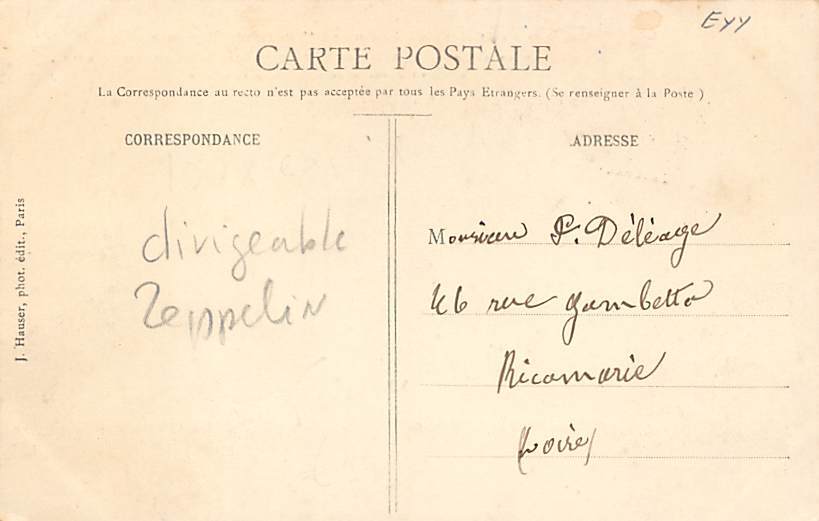 Eyy
CARTE POSTALE
La Correspondance au recto n'est pas acceptée par tous les Pays Etrangers. (Se renseigner à la Poste)
CORRESPONDANCE
ADRESSE
J. Hauser, phot. édit., Paris
dirigeable
Zeppelin
Monsieur P. Déléage
46 rue Gambetta
Ricamarie
Loire